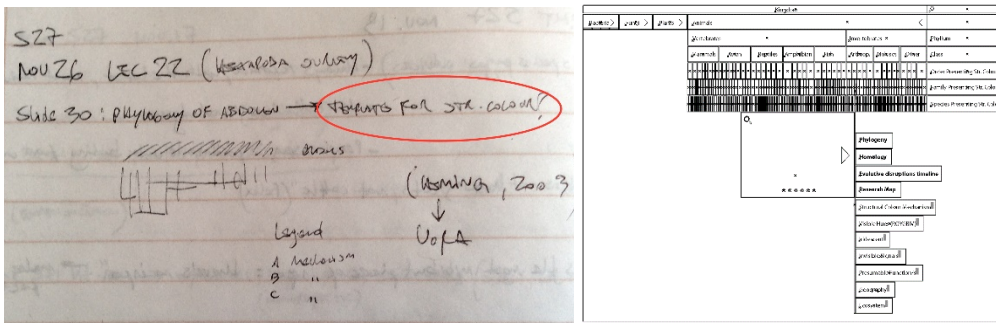 S27
NOV 26 LEC 22 (HEXAPODA SURVEY)
Slide 30: PHYLOGENY OF ABDOMEN → TEMPLATE FOR STR. COLOUR?
Legend
(HEMING, 2003
UofA
A MECHANISM
B "
C "
Kingdom
Bacteria
Fungi
Plants
Animals
Vertebrates
Invertebrates
Phylum
Mammals
Reptiles
Amphibian
Fish
Arthrop.
Molluscs
Other
Class
Order Presenting Str. Colo
Family Presenting Str. Colo
Species Presenting Str. Colo
Phylogeny
Homology
Evolutive disruptions timeline
Research Map
Structural Colour Mechanism
Visible Hues (ROYGBIV)
Iridescent
Invisible Signals
Presumable Function
Geography
Ecosystem